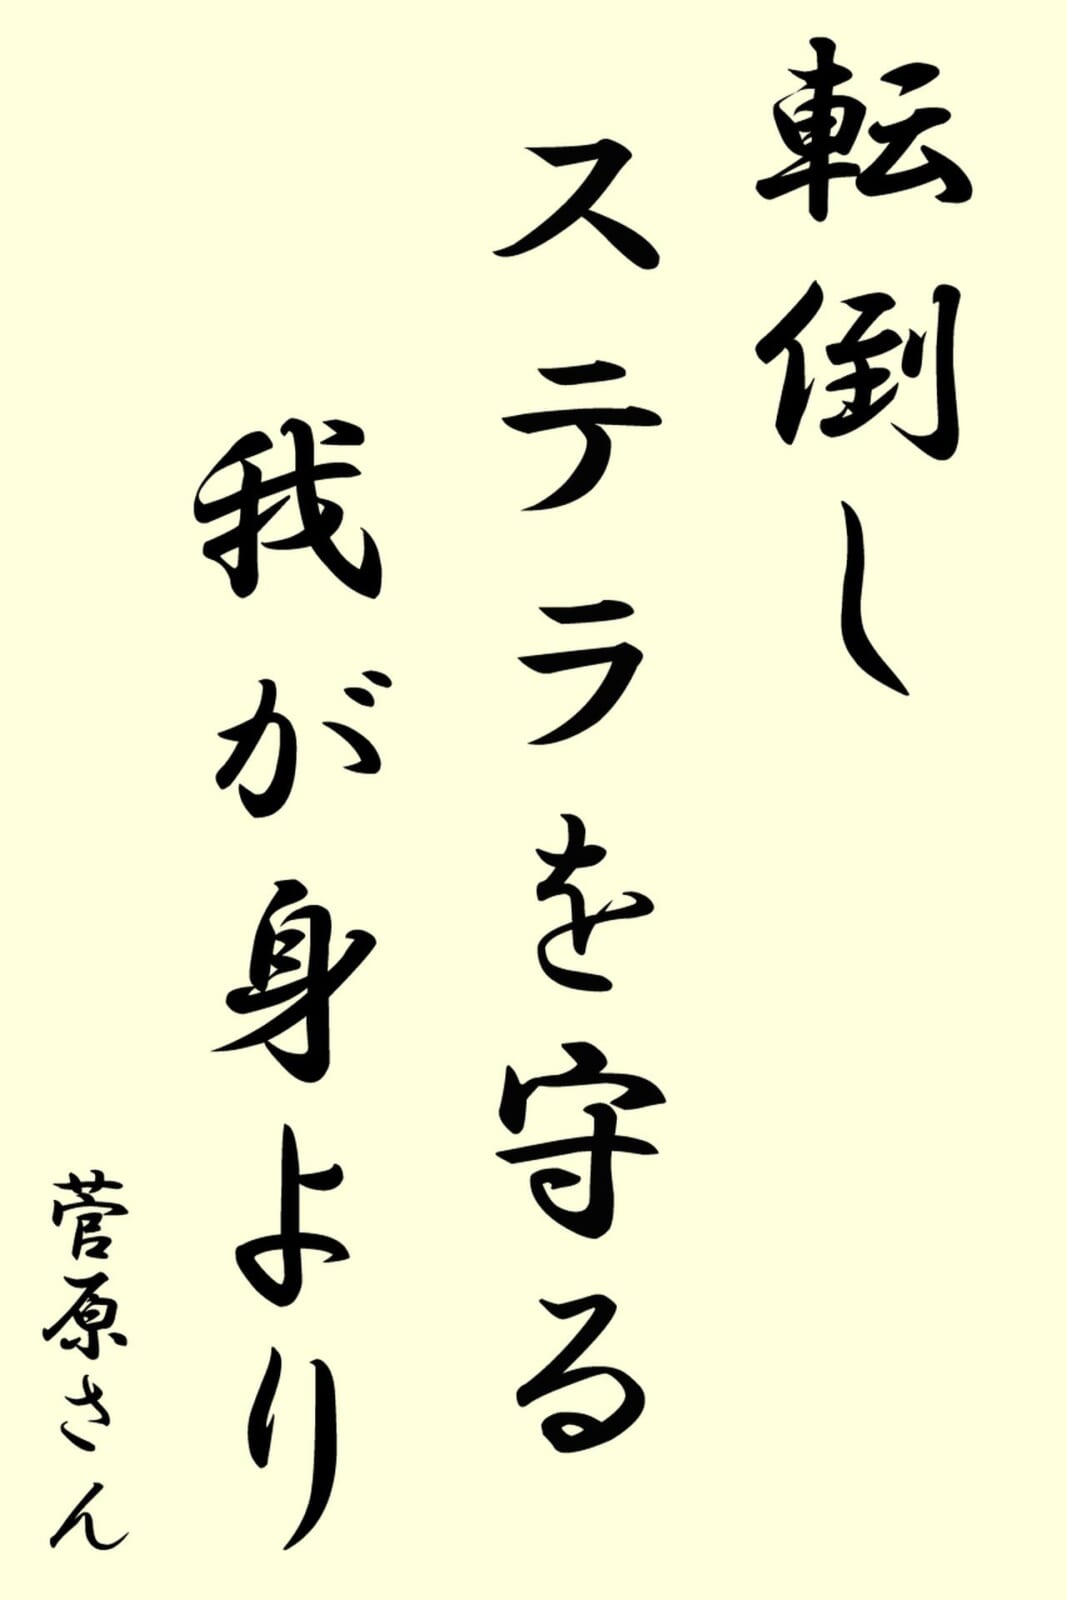 転倒し
ステラを守る
我が身より
菅原さん